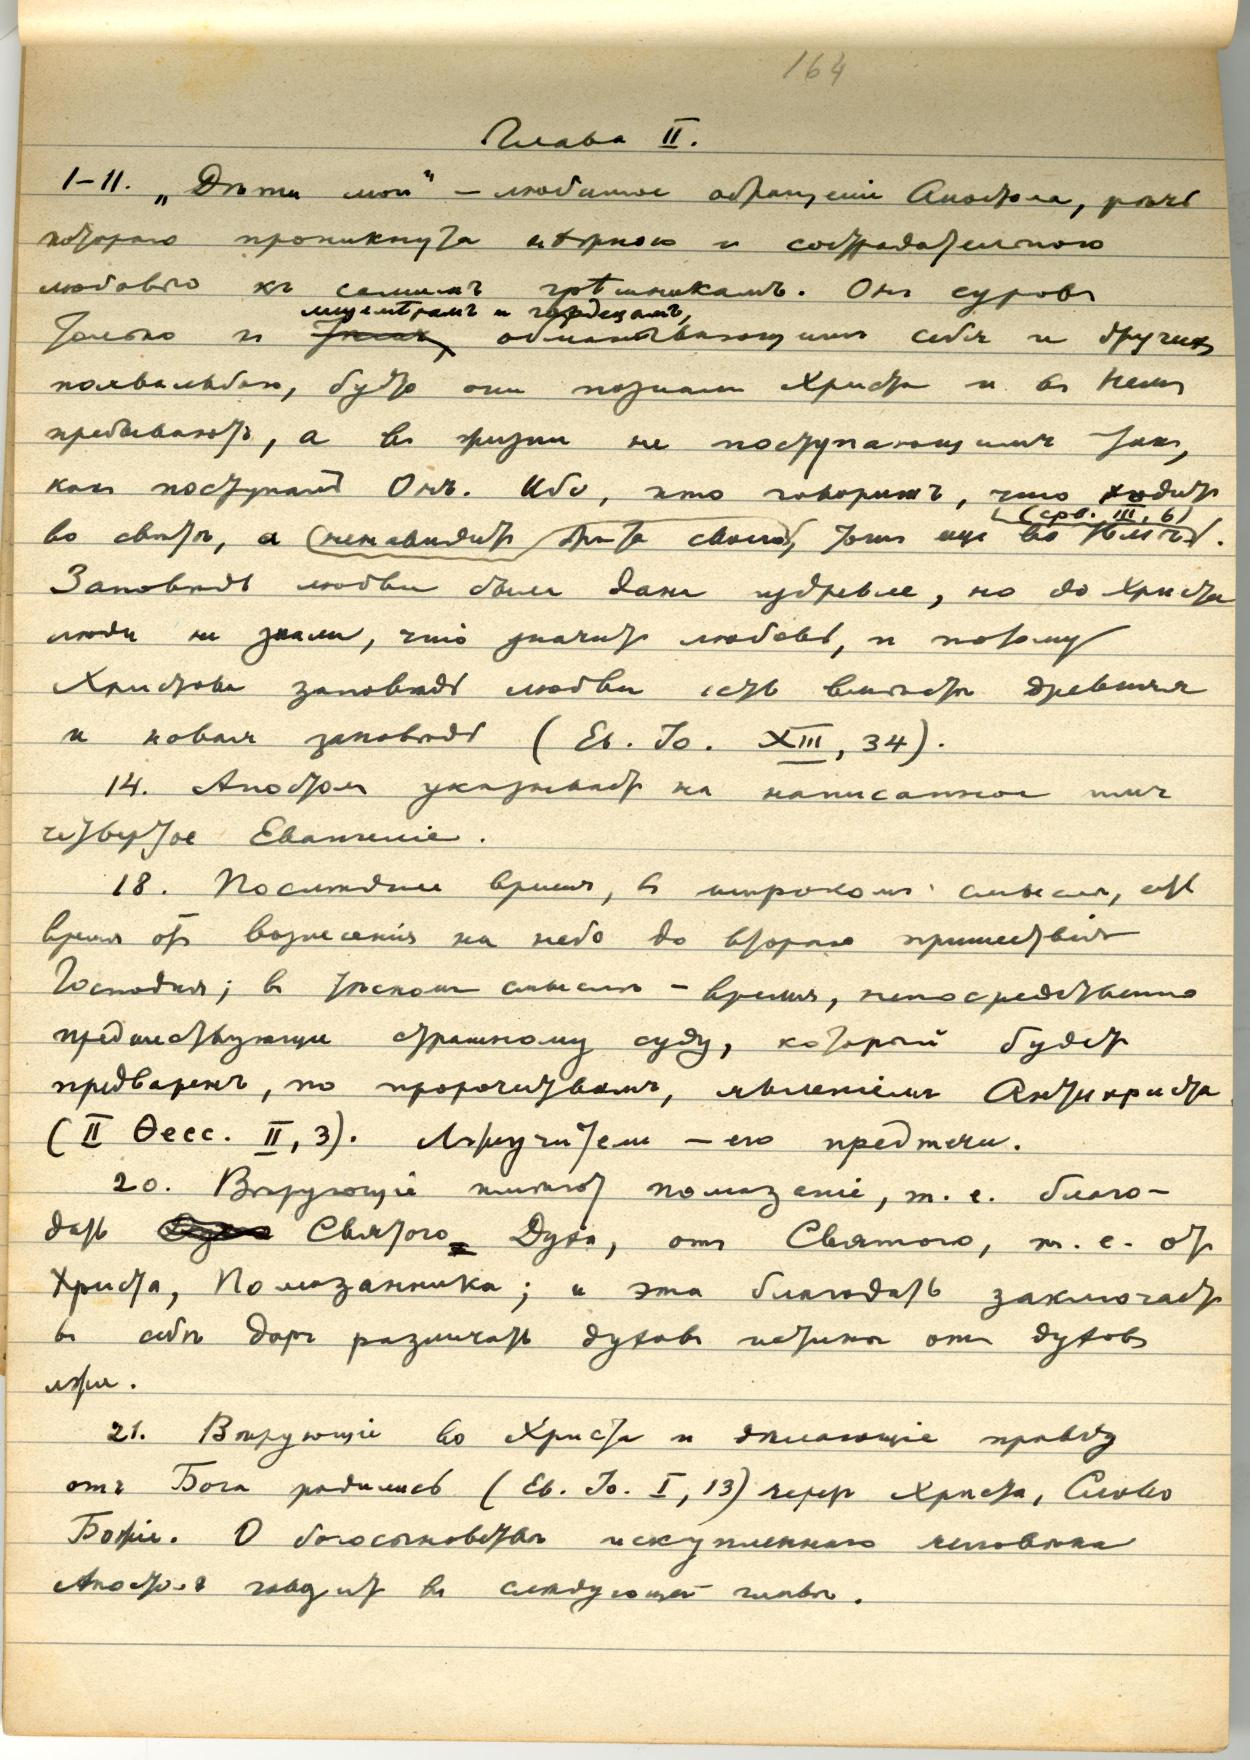 164
Глава II.
1-11. „Дѣти мои" – любимое обращеніе Апостола, рѣчь
котораго проникнута и сострадательною
любовью къ самимъ грѣшникамъ. Онъ суровъ
лицемѣрамъ и гордецамъ,
только къ обманывающимъ себя и другихъ
похвальбою, будто они познали Христа и въ Немъ
пребываютъ, а въ жизни не поступающимъ такъ,
какъ поступалъ Онъ. Ибо, кто говоритъ, что ходитъ
(срв. III, 6)
во свѣтѣ, а ненавидитъ брата своего, тотъ еще во тьмѣ.
Заповѣдь любви была дана издревле, но до Христа
люди не знали, что значитъ любовь, и потому
Христова заповѣдь любви есть вмѣстѣ древняя
и новая заповѣдь (Ев. Іо. XIII, 34).
14. Апостолъ указываетъ на написанное имъ
четвертое Евангеліе.
18. Послѣднее время, въ широкомъ смыслѣ, есть
время отъ вознесенія на небо до второго пришествія
Господня; въ узскомъ смыслѣ – время, непосредственно
предшествующее страшному суду, который будетъ
предваренъ, по пророчествамъ, явленіемъ Антихриста
(II Ѳесс. II, 3). Лжеучители – его предтечи.
20. Вѣрующіе имѣютъ помазаніе, т. е. благо-
дать Святого Духа, отъ Святого, т. е. отъ
Христа, Помазанника; и эта благодать заключаетъ
въ себѣ даръ различать духовъ истины отъ духовъ
лжи.
21. Вѣрующіе во Христа и дѣлающіе правду
отъ Бога родились (Ев. Іо. I, 13) черезъ Христа, Слово
Божіе. О богосыновствѣ искупленнаго человѣка
Апостолъ говоритъ въ слѣдующей главѣ.